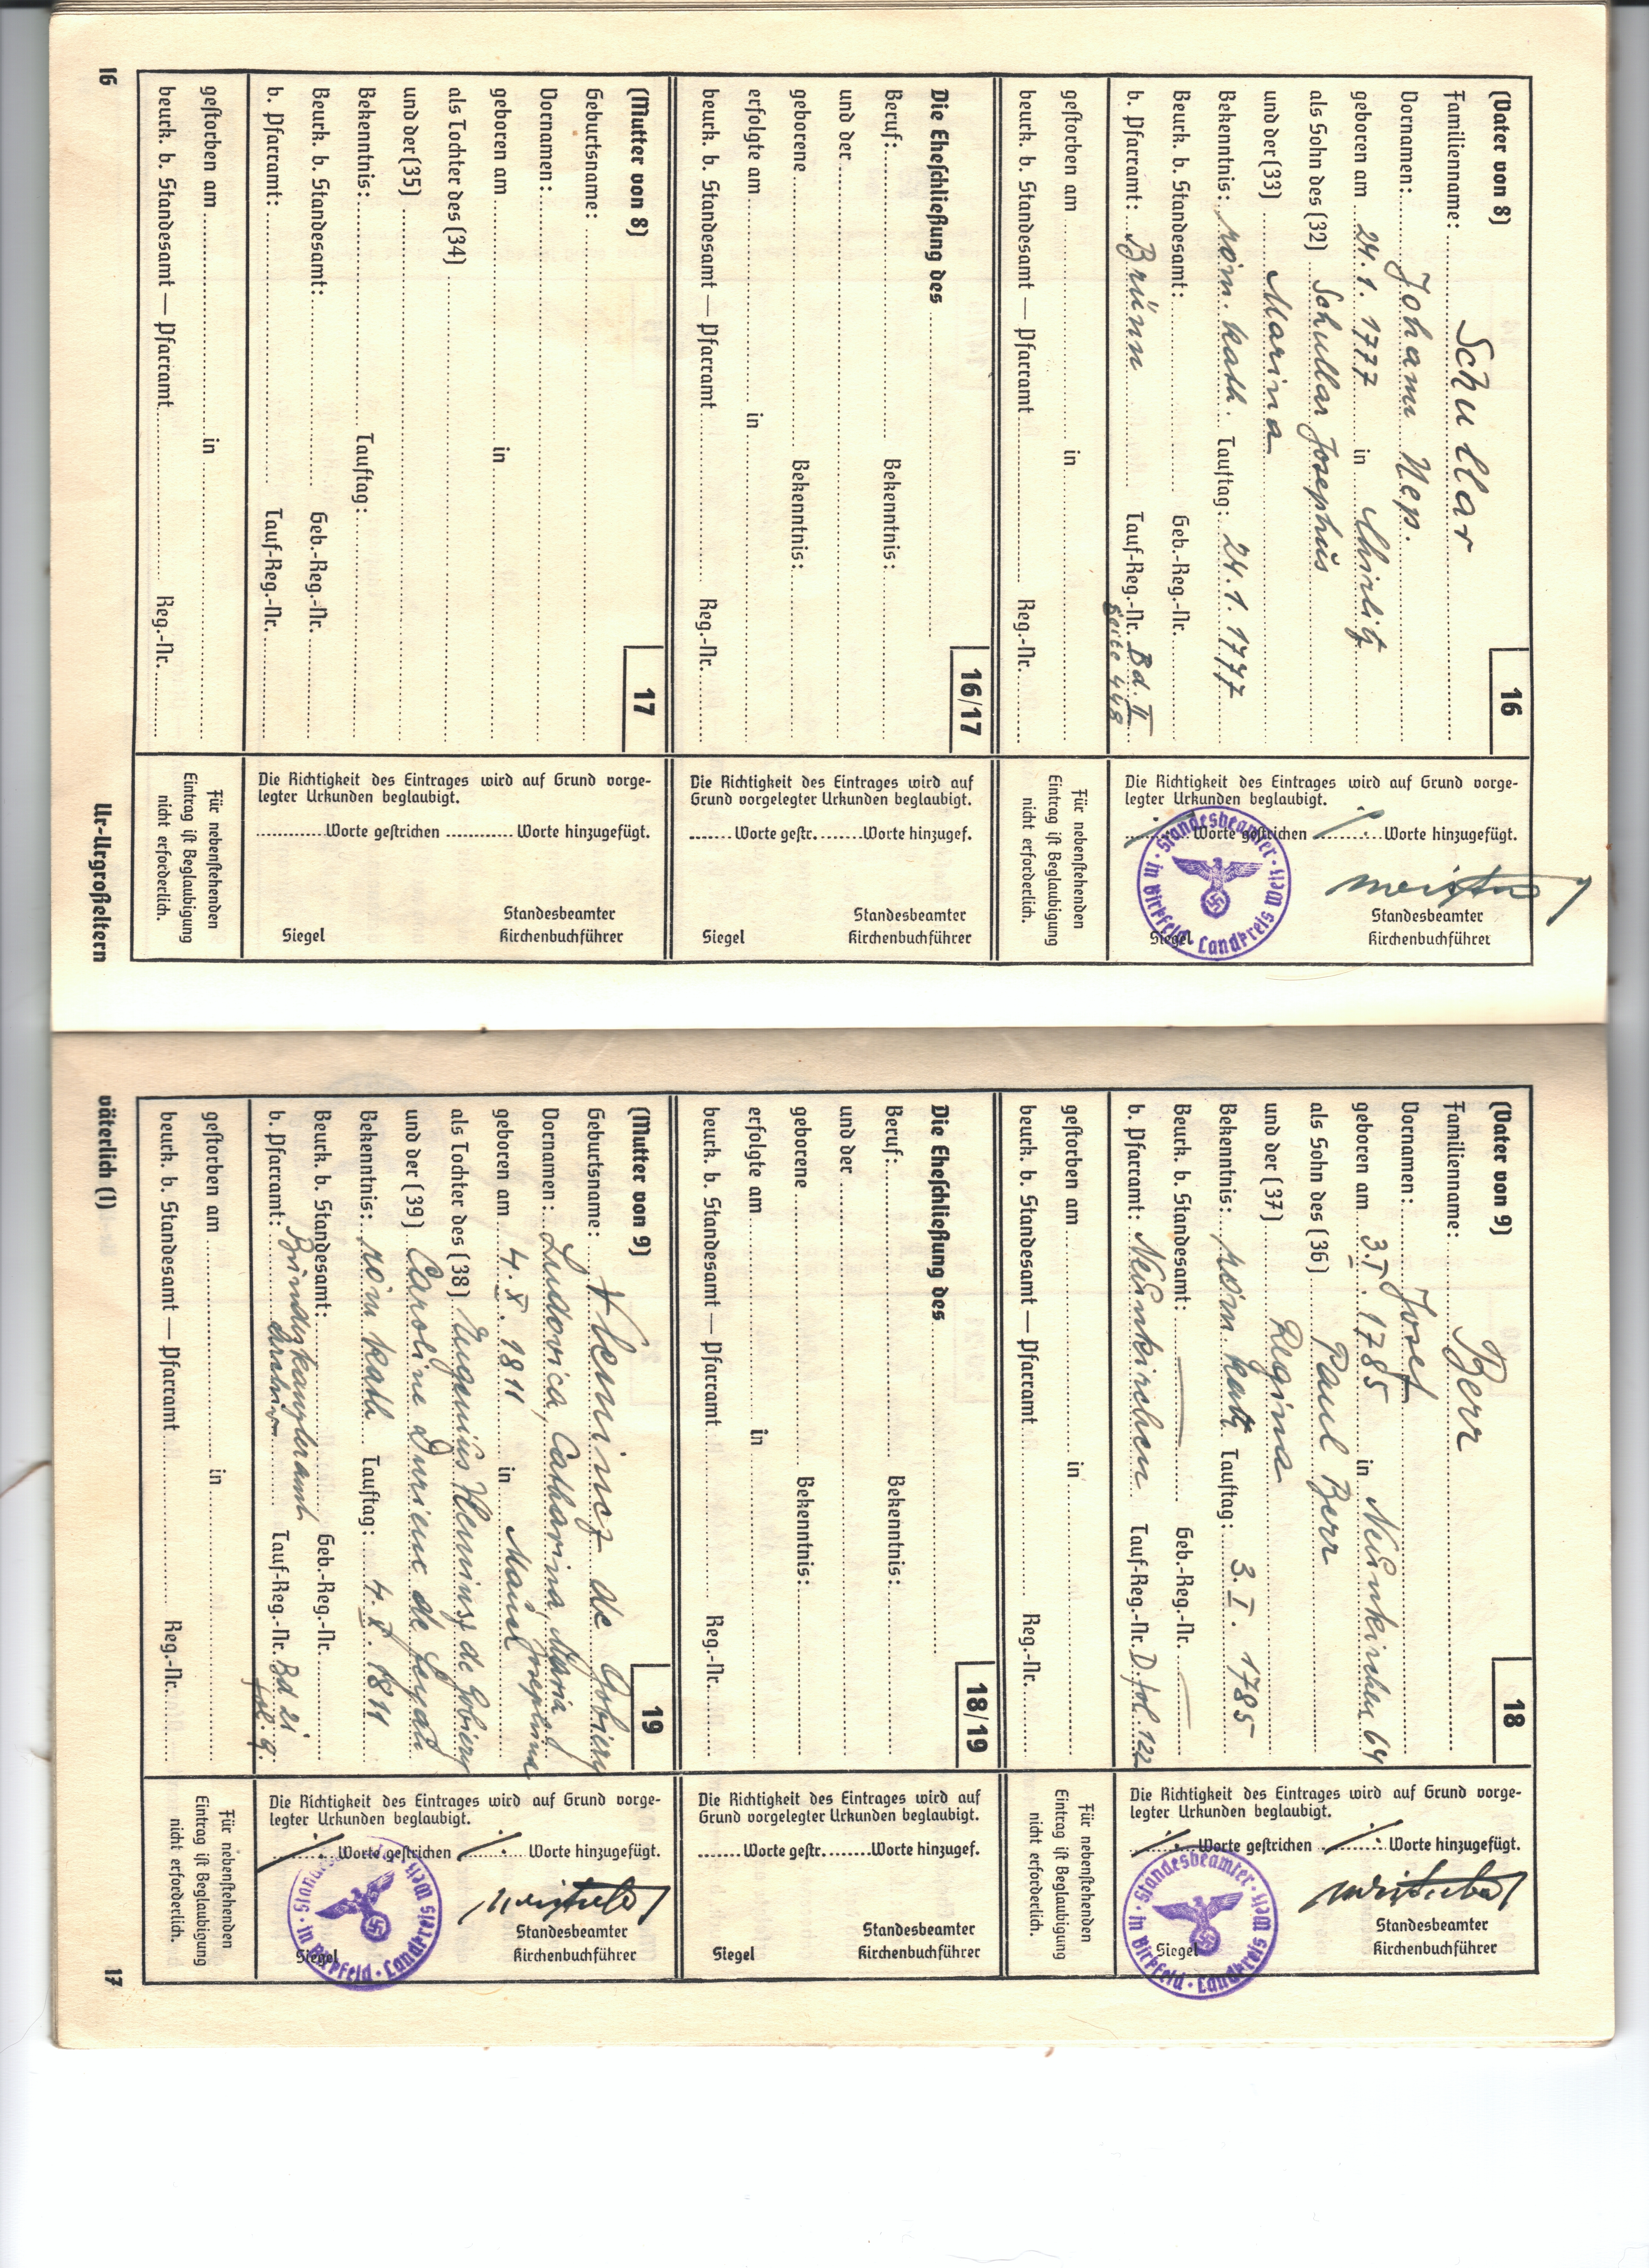 (Vater von 8)
16
Familienname: Schullar
Vornamen: Johann Nep.
geboren am 24.1.1777 in
als Sohn des (32) Schullar Josephus
und der (33) Marina
Bekenntnis: röm. kath. Tauftag: 24.1.1777
Beurk. b. Standesamt: Geb.-Reg.-Nr.
b. Pfarramt: Brünn Tauf-Reg.-Nr. Bd. II
Seite 448
gestorben am in
beurk. b. Standesamt — Pfarramt Reg.-Nr.
Die Richtigkeit des Eintrages wird auf Grund vorge-
legter Urkunden beglaubigt.
Worte gestrichen Worte hinzugefügt.
Standesbeamter
Siegel Kirchenbuchführer
Standesbeamter · in Birkfeld · Landkreis Weiz
Für nebenstehenden
Eintrag ist Beglaubigung
nicht erforderlich.
Die Eheschließung des
16/17
Beruf: Bekenntnis:
und der
geborene Bekenntnis:
erfolgte am in
beurk. b. Standesamt — Pfarramt Reg.-Nr.
Die Richtigkeit des Eintrages wird auf
Grund vorgelegter Urkunden beglaubigt.
Worte gestr. Worte hinzugef.
Standesbeamter
Siegel Kirchenbuchführer
(Mutter von 8)
17
Geburtsname:
Vornamen:
geboren am in
als Tochter des (34)
und der (35)
Bekenntnis: Tauftag:
Beurk. b. Standesamt: Geb.-Reg.-Nr.
b. Pfarramt: Tauf-Reg.-Nr.
gestorben am in
beurk. b. Standesamt — Pfarramt Reg.-Nr.
Die Richtigkeit des Eintrages wird auf Grund vorge-
legter Urkunden beglaubigt.
Worte gestrichen Worte hinzugefügt.
Standesbeamter
Siegel Kirchenbuchführer
Für nebenstehenden
Eintrag ist Beglaubigung
nicht erforderlich.
16 Ur-Urgroßeltern
(Vater von 9)
18
Familienname: Berr
Vornamen: Josef
geboren am 3.I.1785 in Neunkirchen 64
als Sohn des (36) Paul Berr
und der (37) Regina
Bekenntnis: röm. kath Tauftag: 3.I.1785
Beurk. b. Standesamt: Geb.-Reg.-Nr.
b. Pfarramt: Neunkirchen Tauf-Reg.-Nr. D. fol. 122
gestorben am in
beurk. b. Standesamt — Pfarramt Reg.-Nr.
Die Richtigkeit des Eintrages wird auf Grund vorge-
legter Urkunden beglaubigt.
Worte gestrichen Worte hinzugefügt.
Standesbeamter
Siegel Kirchenbuchführer
Standesbeamter · in Birkfeld · Landkreis Weiz
Für nebenstehenden
Eintrag ist Beglaubigung
nicht erforderlich.
Die Eheschließung des
18/19
Beruf: Bekenntnis:
und der
geborene Bekenntnis:
erfolgte am in
beurk. b. Standesamt — Pfarramt Reg.-Nr.
Die Richtigkeit des Eintrages wird auf
Grund vorgelegter Urkunden beglaubigt.
Worte gestr. Worte hinzugef.
Standesbeamter
Siegel Kirchenbuchführer
(Mutter von 9)
19
Geburtsname: de
Vornamen: Ludovica, Catharina, Maria
Josephina
geboren am 4.X.1811 in
als Tochter des (38) Eugenius de
und der (39) Caroline de
Bekenntnis: röm kath Tauftag: 4.X.1811
Beurk. b. Standesamt: Geb.-Reg.-Nr.
Bundeskanzleramt
b. Pfarramt: Tauf-Reg.-Nr. Bd 21
fol: 9.
gestorben am in
beurk. b. Standesamt — Pfarramt Reg.-Nr.
Die Richtigkeit des Eintrages wird auf Grund vorge-
legter Urkunden beglaubigt.
Worte gestrichen Worte hinzugefügt.
Standesbeamter
Siegel Kirchenbuchführer
Standesbeamter · in Birkfeld · Landkreis Weiz
Für nebenstehenden
Eintrag ist Beglaubigung
nicht erforderlich.
väterlich (I) 17